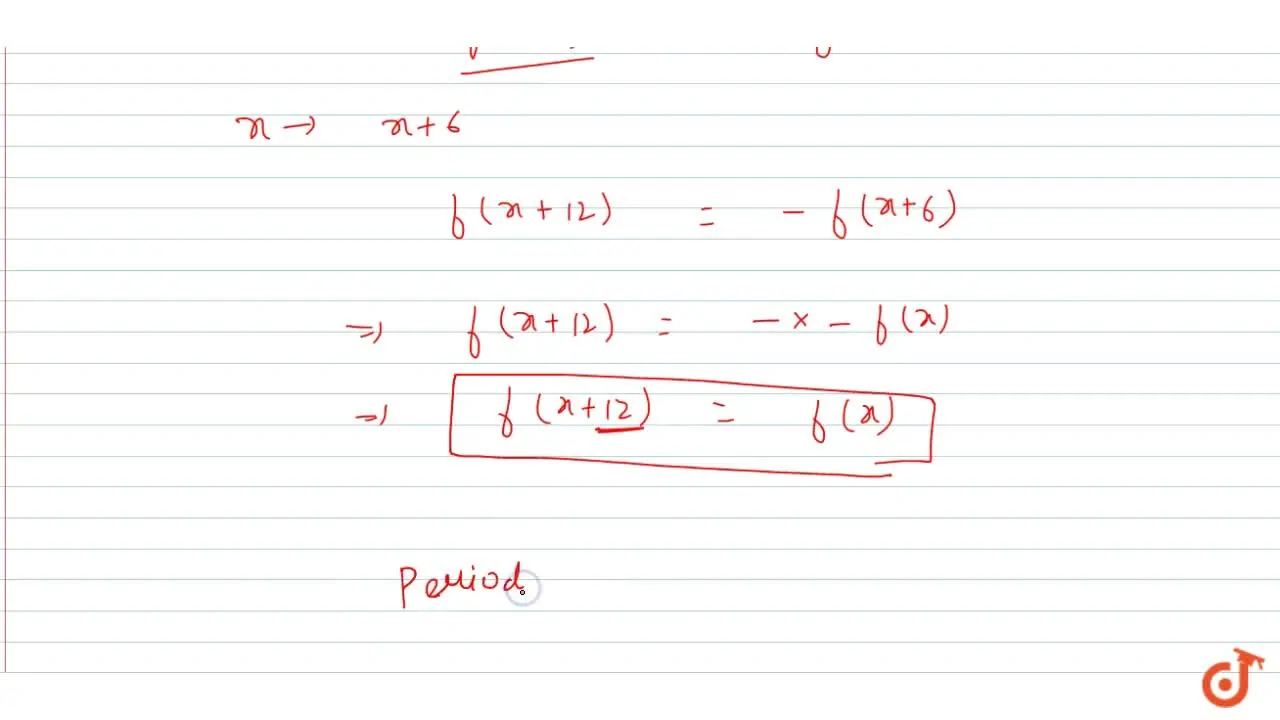 x → x+6
f(x+12) = - f(x+6)
⇒ f(x+12) = - × - f(x)
⇒ f(x+12) = f(x)
Period